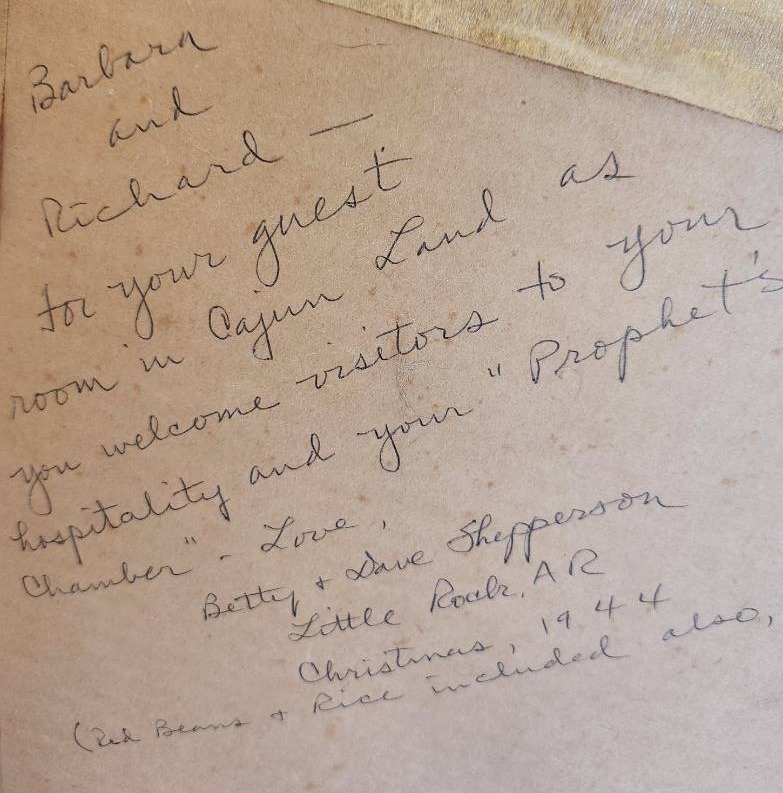 Barbara
and
Richard —
for your guest
room in Cajun Land as
you welcome visitors to your
hospitality and your "Prophet's
Chamber" - Love,
Betty + Dave Shepperson
Little Rock, AR
Christmas, 1944
(Red Beans + Rice included also,